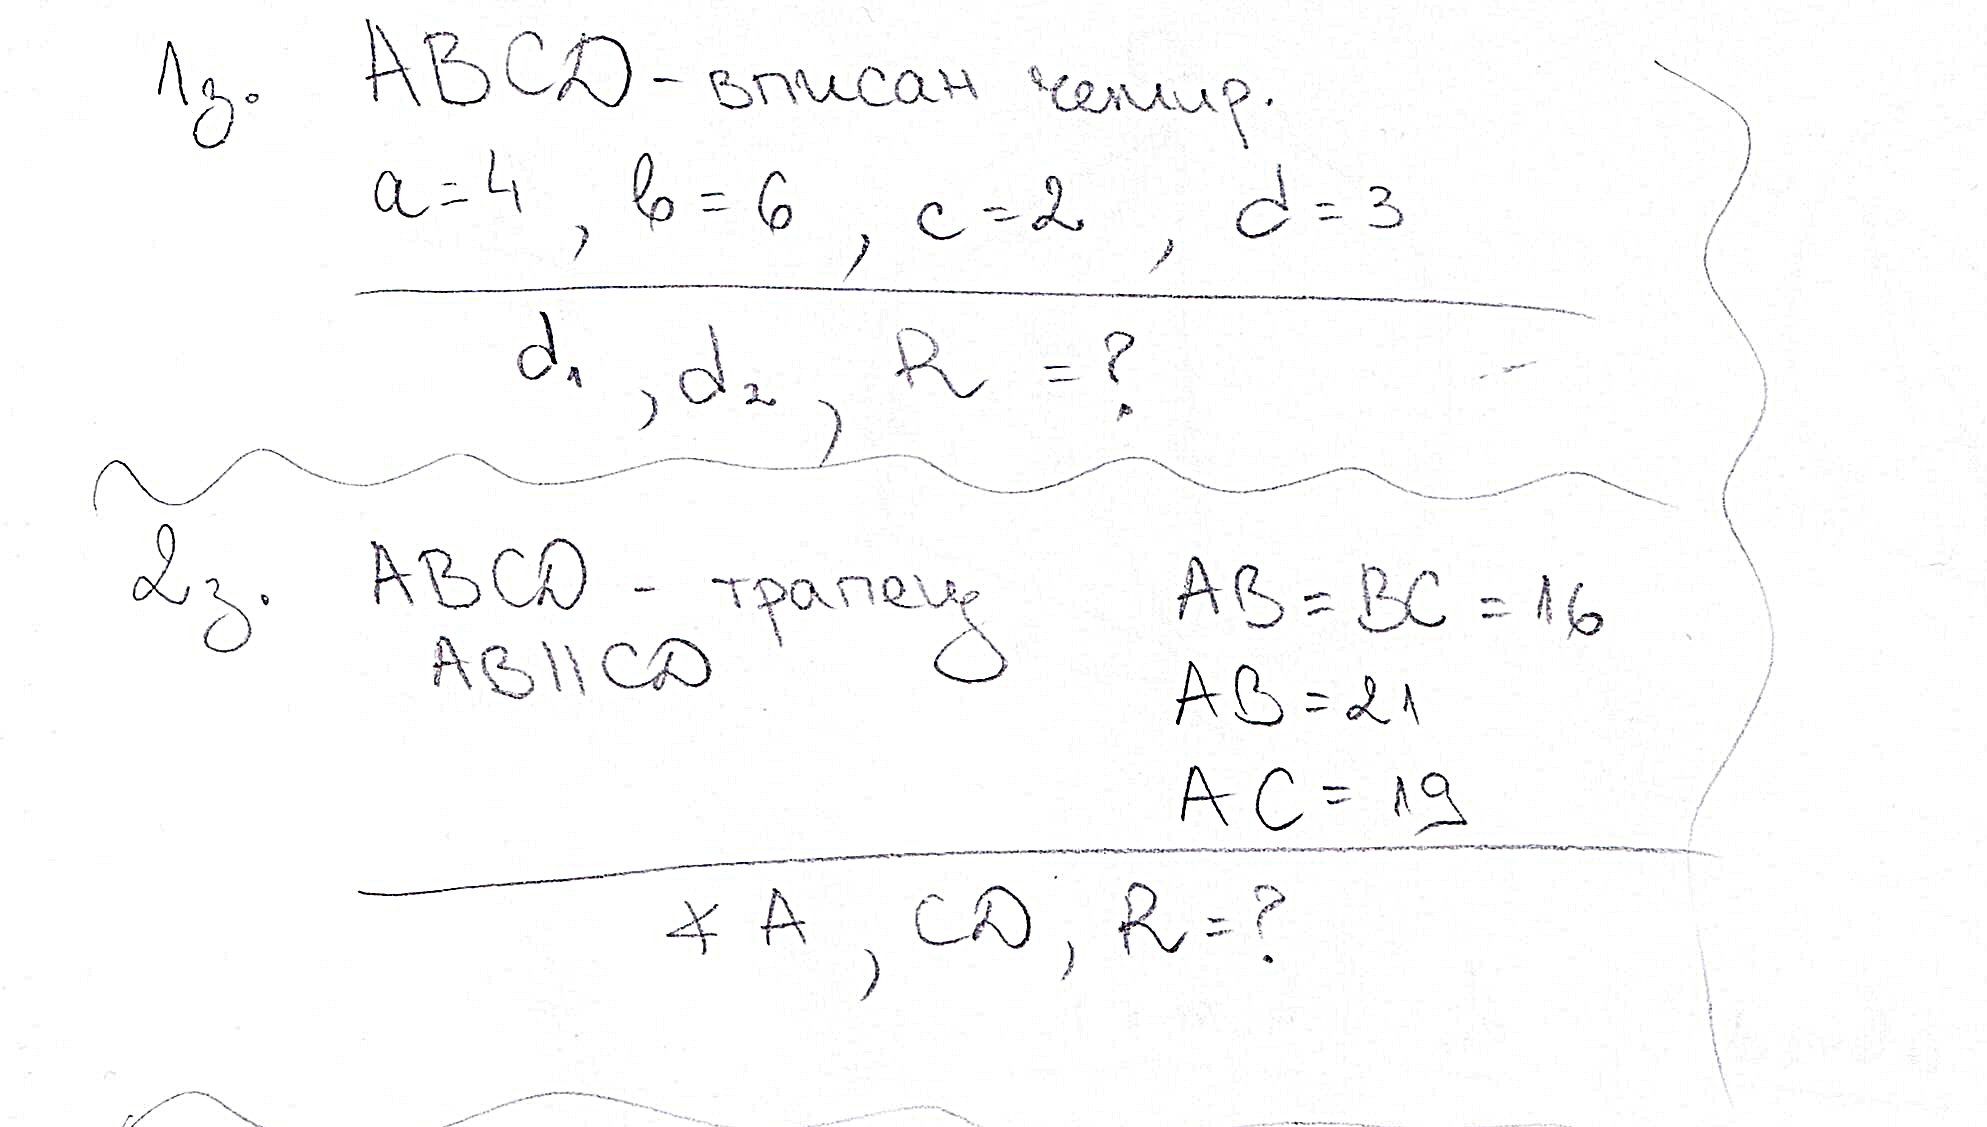 1з. ABCD - вписан четир.
a = 4, b = 6, c = 2, d = 3
d₁, d₂, R = ?
2з. ABCD - трапец AB = BC = 16
AB || CD AB = 21
AC = 19
∡ A, CD, R = ?